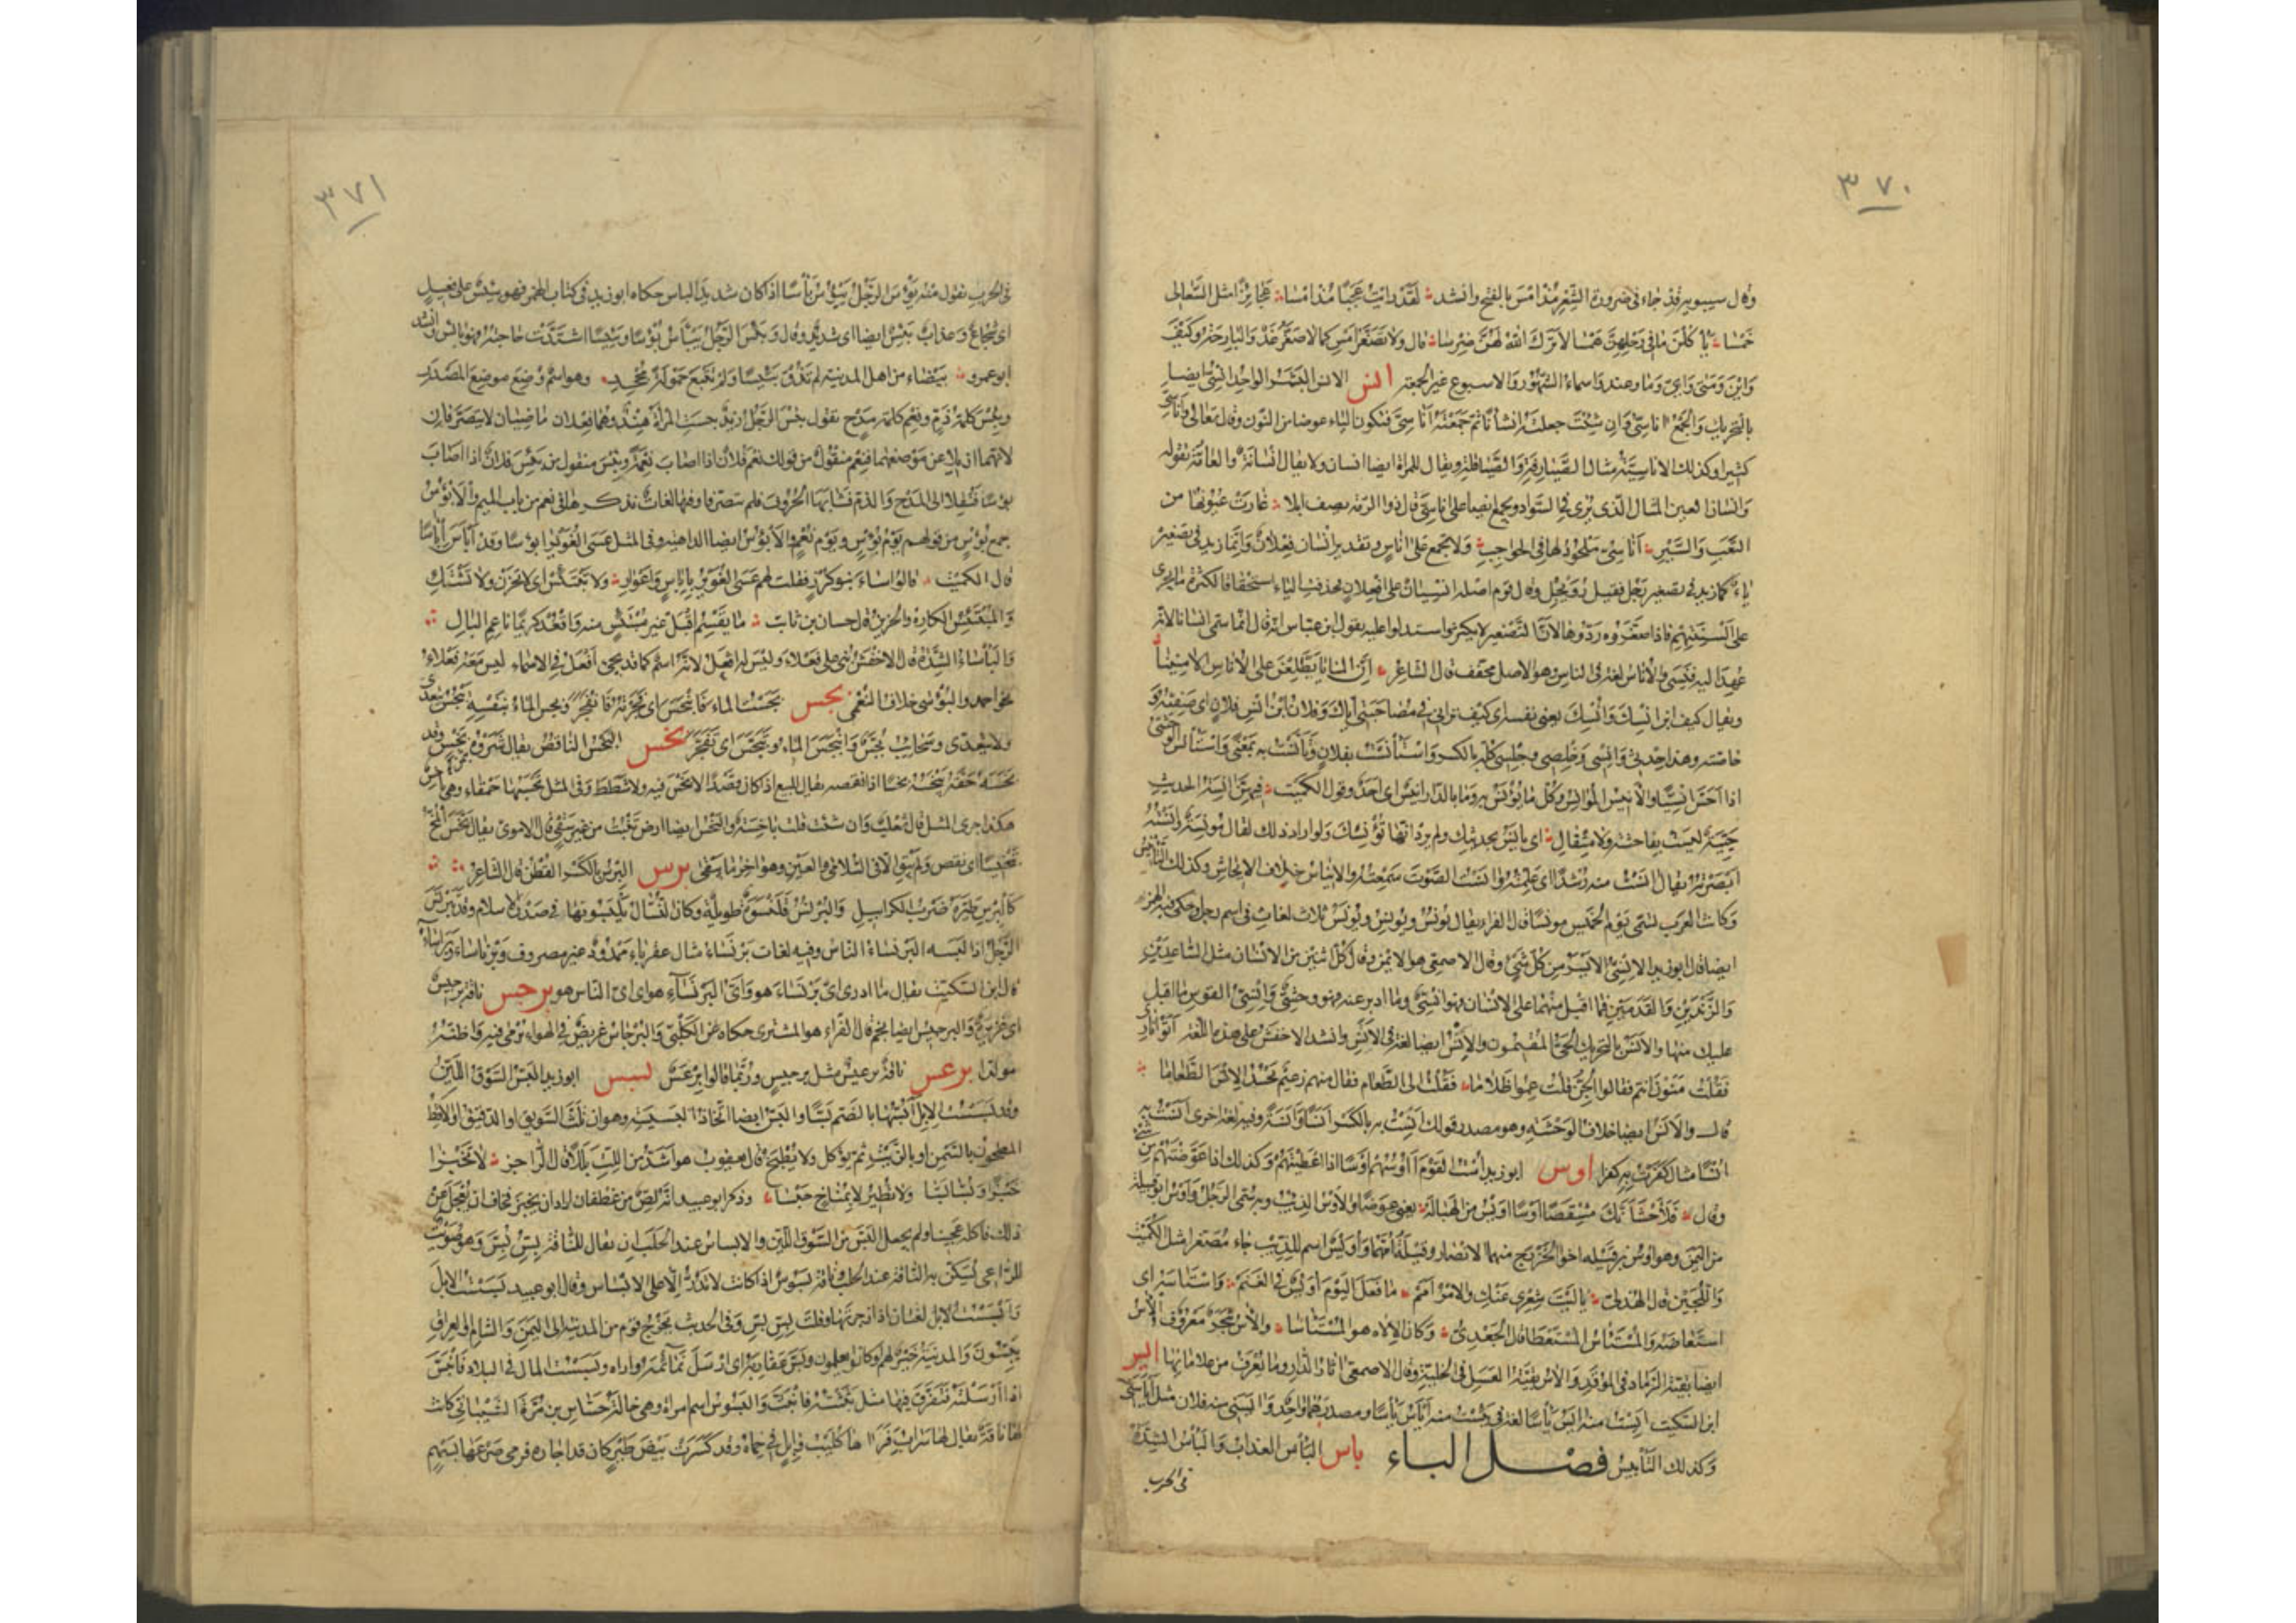 ٣٧٠
وقال سيبويه قد جاء في ضرورة الشعر مذ امس بالفتح وانشد لقد رايت عجبا مذ امسا عجائزا مثل السعالى
خمسا يا كلن ما في رحلهن همسا لا ترك الله لهن ضرسا قال ولا تصغر امس كما لا يصغر غد والبارحة وكيف
واين ومتى واى وما وعند واسماء الشهور والاسبوع غير الجمعة انس الانس البشر الواحد انسى ايضا
بالتحريك والجمع اناسى وان شئت جعلته انسانا ثم جمعته اناسى فتكون الياء عوضا من النون وقال تعالى واناسى
كثيرا وكذلك الاناسية مثال الصيارفة والصياقلة ويقال للمراة ايضا انسان ولا يقال انسانة والعامة تقوله
وانسان العين المثال الذى يرى في السواد ويجمع ايضا على اناسى قال ذو الرمة يصف ابلا غارت عيونها من
التعب والسير اناسى ملحود لها في الحواجب ولا يجمع على اناس وتقدير انسان فعلان وانما زيد في تصغيره
ياء كما زيد في تصغير رجل فقيل رويجل وقال قوم اصله انسيان على افعلان فحذفت الياء استخفافا لكثرة ما يجرى
على السنتهم فاذا صغروه ردوها لان التصغير لا يكثر واستدلوا عليه بقول ابن عباس انه قال انما سمى انسانا لانه
عهد اليه فنسى والاناس لغة في الناس وهو الاصل مخفف قال الشاعر ان المنايا يطلعن على الاناس الامنينا
ويقال كيف ابن انسك وانسك يعنى نفسه اى كيف ترانى في مصاحبتى اياك وفلان ابن انس فلان اى صفيه و
خاصته وهذا حدثى وانسى وخلصى وجلسى كله بالكسر واستانست بفلان وتانست به بمعنى واستانس الوحشى
اذا احس انسيا والانيس المؤانس وكل ما يؤنس به وما بالدار انيس اى احد وقول الكميت فيهن آنسة الحديث
حيية ليست بفاحشة ولا متفال اى تانس بحديثك ولم يرد انها تؤنسك ولو اراد ذلك لقال مونسة وانسته
ابصرته يقال انست منه رشدا اى علمته وانست الصوت سمعته والايناس خلاف الايحاش وكذلك التانيس
وكانت العرب تسمى يوم الخميس مونسا قال الفراء يقال يونس ويونس ويونس ثلاث لغات في اسم رجل وحكى فيه الهمز
ايضا قال ابو زيد الانسى الايسر من كل شئ وقال الاصمعى هو الايمن وقال كل اثنين من الانسان مثل الساعدين
والزندين والقدمين فما اقبل منهما على الانسان فهو انسى وما ادبر عنه فهو وحشى وانسى القوس ما اقبل
عليك منها والانس بالتحريك الحى المقيمون والانس ايضا لغة في الانس وانشد الاخفش على هذه اللغة اتوا نارى
فقلت منون انتم فقالوا الجن قلت عموا ظلاما فقلت الى الطعام فقال منهم زعيم نحسد الانس الطعاما
قال والانس ايضا خلاف الوحشة وهو مصدر قولك انست به بالكسر انسا وانسة وفيه لغة اخرى انست به
انسا مثال كفرت به كفرا اوس ابو زيد است القوم اؤوسهم اوسا اذا اعطيتهم وكذلك اذا عوضتهم من شئ
وقال فلاحشانك مشقصا اوسا اويس من الهبالة يعنى عوضا والاوس الذيب وبه سمى الرجل واوس ابو قبيلة
من اليمن وهو اوس بن قيلة اخو الخزرج منهما الانصار وقيلة امهما واويس اسم للذيب جاء مصغرا مثل الكميت
واللجين قال الهذلى يا ليت شعرى عنك والامر امم ما فعل اليوم اويس في الغنم واستاسه اى
استعاضه والمستاس المستعطا قال الجعدى وكان الاله هو المستاسا والاس شجر معروف الاس
ايضا بقية الرماد في الموقد والاس بقية العسل في الخلية وقال الاصمعى اثار الدار وما يعرف من علاماتها ايس
ابن السكيت ايست منه ايس ياسا لغة في يئست منه ايأس يأسا ومصدرهما واحد وايسنى منه فلان مثل اياسنى
وكذلك التاييس فصل الباء باس الباس العذاب والباس الشدة
في الحرب
٣٧١
في الحرب تقول منه بؤس الرجل يبؤس باسا اذا كان شديد الباس حكاه ابو زيد في كتاب الهمز فهو بئيس على فعيل
اى شجاع وعذاب بئيس ايضا اى شديد وقال وبئس الرجل يبأس بؤسا وبئيسا اشتدت حاجته فهو بائس وانشد
ابو عمرو بيضاء من اهل المدينة لم تذق بئيسا ولم تتبع حمولة مجحد وهو اسم وضع موضع المصدر
وبئس كلمة ذم ونعم كلمة مدح تقول بئس الرجل زيد وبئست المراة هند وهما فعلان ماضيان لا يتصرفان
لانهما ازيلا عن موضعهما فنعم منقول من قولك نعم فلان اذا اصاب نعمة وبئس منقول من بئس فلان اذا اصاب
بؤسا فنقلا الى المدح والذم فشابها الحروف فلم يتصرفا وفيهما لغات نذكرها في نعم من باب الميم والابؤس
جمع بؤس من قولهم يوم بؤس ويوم نعم والابؤس ايضا الداهية وفي المثل عسى الغوير ابؤسا وقد ابأس ابآسا
قال الكميت قالوا اساء بنو كرز فقلت لهم عسى الغوير بابآس واغوار ولا تبتئس اى لا تحزن ولا تشتك
والمبتئس الكاره والحزين قال حسان بن ثابت ما يقسم الله اقبل غير مبتئس منه واقعد كريما ناعم البال
والبأساء الشدة قال الاخفش بنى على فعلاء وليس له افعل لانه اسم كما قد يجئ افعل في الاسماء ليس معه فعلاء
نحو احمد والبؤسى خلاف النعمى بجس بجست الماء فانبجس اى فجرته فانفجر وبجس الماء بنفسه يبجس يتعدى
ولا يتعدى وسحائب بجس وانبجس الماء وتبجس اى تفجر بخس البخس الناقص يقال شروه بثمن بخس وقد
بخسه حقه يبخسه بخسا اذا نقصه يقال للبيع اذا كان قصدا لا بخس فيه ولا شطط وفي المثل تحسبها حمقاء وهى باخس
هكذا جرى المثل قال ثعلب وان شئت قلت باخسة والبخس ايضا ارض تنبت من غير سقى قال الاموى يقال بخس المخ
تبخيسا اى نقص ولم يبق الا في السلامى والعين وهو اخر ما يبقى برس البرس بالكسر القطن قال الشاعر
كالبرس طيره ضرب الكرابيل والبرنس قلنسوة طويلة وكان النساك يلبسونها في صدر الاسلام وقد تبرنس
الرجل اذا لبسه البرنساء الناس وفيه لغات برنساء مثال عقرباء ممدود غير مصروف وبرناساء وبراساء
قال ابن السكيت يقال ما ادرى اى برنساء هو واى البرنساء هو اى اى الناس هو برجس ناقة برجيس
اى غزيرة والبرجيس ايضا نجم قال الفراء هو المشترى حكاه عن الكلبى والبرجاس غرض في الهواء يرمى فيه واظنه
مولدا برعس ناقة برعيس مثل برجيس وربما قالوا برعس بسس ابو زيد البس السوق اللين
وقد بسست الابل ابسها بالضم بسا والبس ايضا اتخاذ البسيسة وهو ان تلت السويق او الدقيق او الاقط
المطحون بالسمن او بالزيت ثم يؤكل ولا يطبخ قال يعقوب هو اشد من اللت بللا قال الراجز لا تخبزا
خبزا وبسا بسا ولا تطيلا بمناخ حبسا وذكر ابو عبيد انه لص من غطفان اراد ان يخبز فخاف ان يعجل عن
ذلك فاكله عجينا ولم يجعل البس من السوق اللين والابساس عند الحلب ان يقال للناقة بس بس وهو صويت
للراعى يسكن به الناقة عند الحلب وناقة بسوس اذا كانت لا تدر الا على الابساس وقال ابو عبيد بسست الابل
وابسست الابل لغتان اذا زجرتها وقلت بس بس وفي الحديث يخرج قوم من المدينة الى اليمن والشام والعراق
يبسون والمدينة خير لهم لو كانوا يعلمون وبس عقاربه اى ارسل نمائمه واذاه وبسست المال في البلاد فانبس
اذا ارسلته فتفرق فيها مثل بثثته فانبث والبسوس اسم امراة وهى خالة جساس بن مرة الشيبانى كانت
لها ناقة يقال لها سراب فراها كليب وائل في حماه وقد كسرت بيض طير كان قد اجاره فرمى ضرعها بسهم